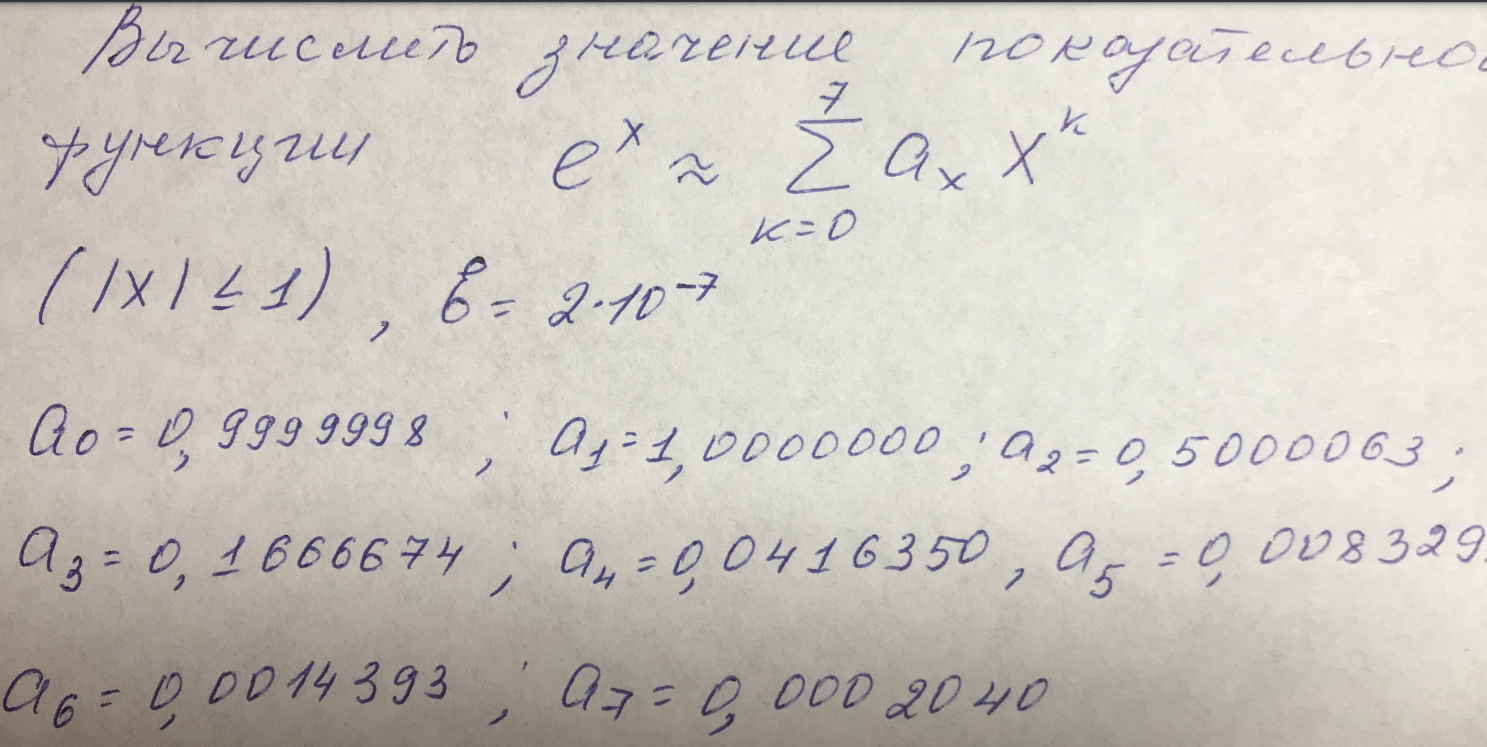 Вычислить значение показательно
функции e^x ≈ ∑_{k=0}^{7} a_x x^k
(|x| ≤ 1), ε = 2·10^{-7}
a_0 = 0,9999998 ; a_1 = 1,0000000 ; a_2 = 0,5000063 ;
a_3 = 0,1666674 ; a_4 = 0,0416350 , a_5 = 0,008329
a_6 = 0,0014393 ; a_7 = 0,0002040